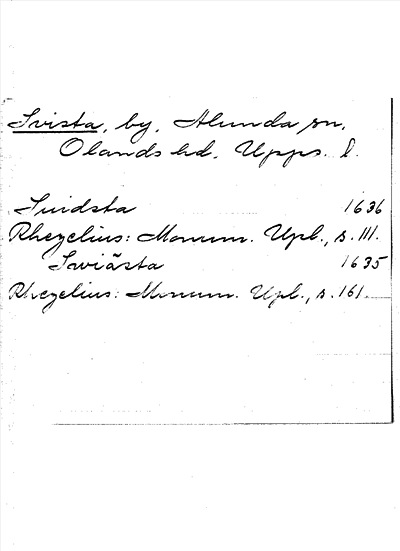 Svista, by, Alunda sn,
Olands hd, Upps. l.
Suidsta 1636
Rhezelius: Monum. Upl., s. 111.
Swiästa 1635
Rhezelius: Monum. Upl., s. 161.